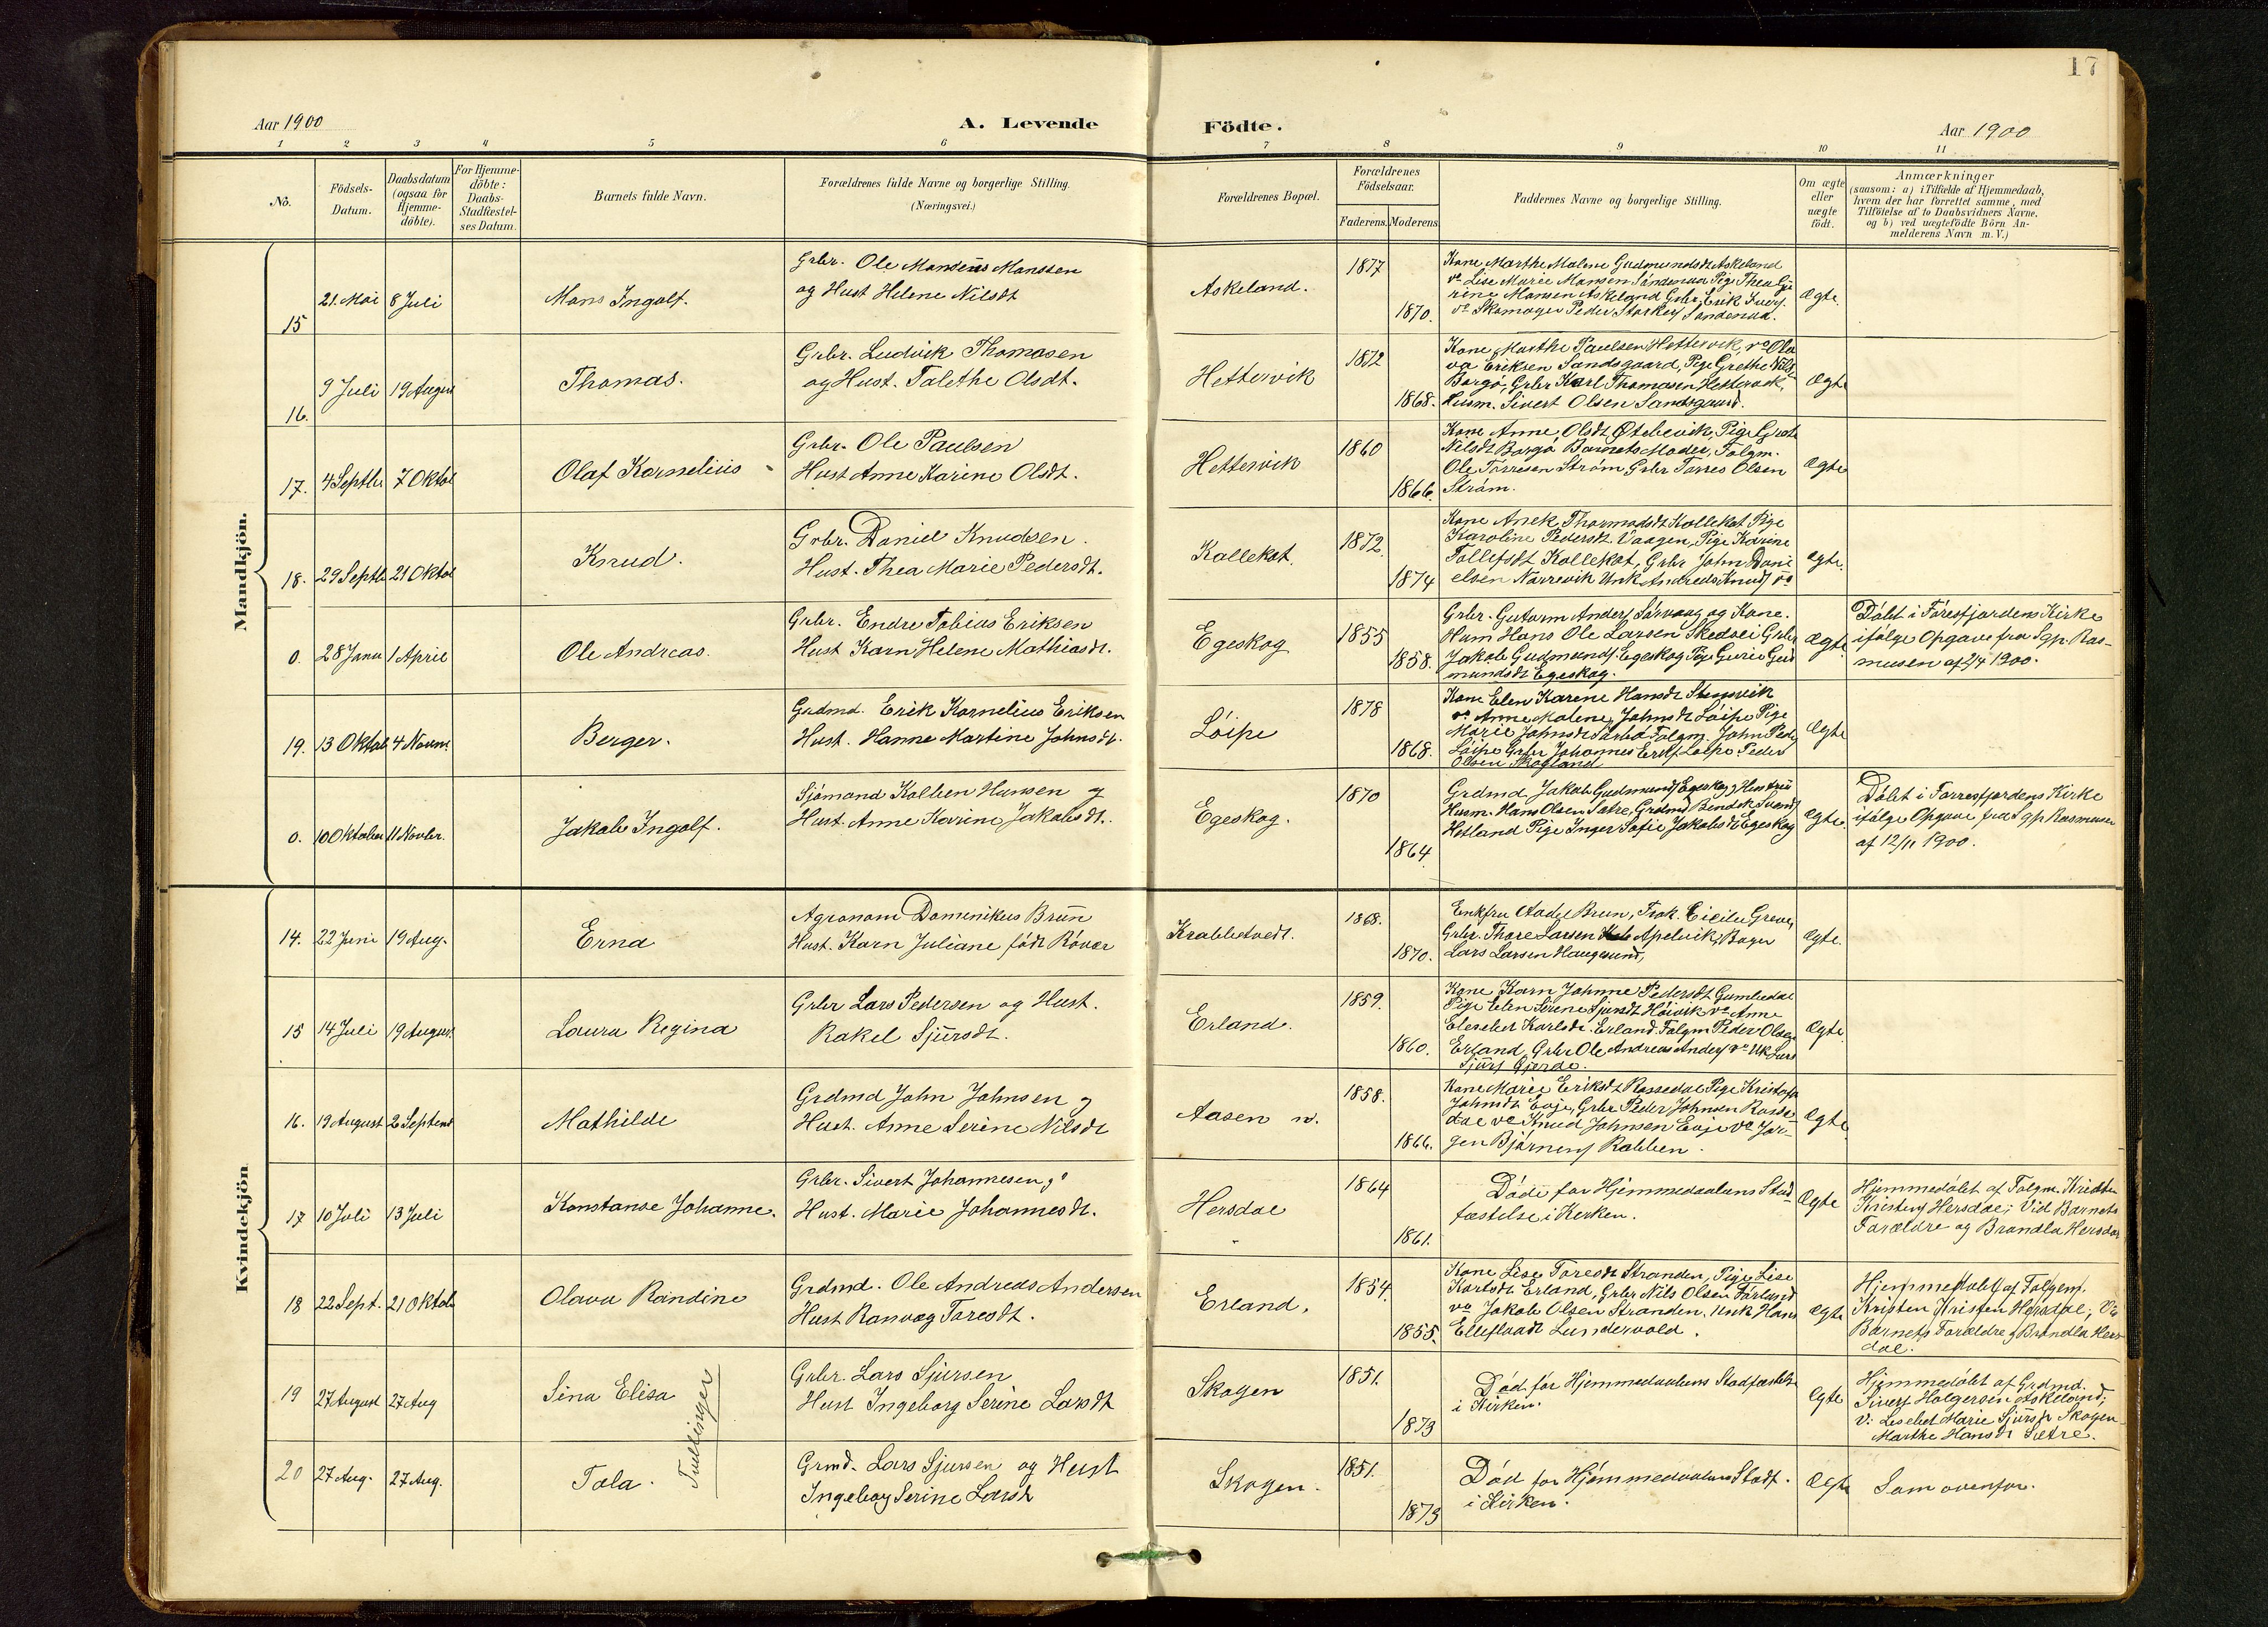 17
Aar 1900
A. Levende
Födte.
Aar 1900
1 2 3 4 5 6 7 8 9 10 11
No.
Födsels-
Datum.
Daabsdatum
(ogsaa for
Hjemme-
döbte).
For Hjemme-
döbte:
Daabs-
Stadfæstel-
ses Datum.
Barnets fulde Navn.
Forældrenes fulde Navne og borgerlige Stilling.
(Næringsvei.)
Forældrenes Bopæl.
Forældrenes
Födselsaar.
Faderens. Moderens.
Faddernes Navne og borgerlige Stilling.
Om ægte
eller
uægte
födt.
Anmærkninger
(saasom: a) i Tilfælde af Hjemmedaab,
hvem der har forrettet samme, med
Tilföielse af to Daabsvidners Navne,
og b) ved uægtefödte Börn An-
melderens Navn m. V.)
Mandkjön.
15
21. Mai
8 Juli
Mons Ingolf.
Grbr. Ole Monsenus Monssen
og Hust Helene Nilsdt
Askeland.
1877
1870.
Kone Marthe Malene Gudmundsdt Askeland
vo Lise Marie Monsen Søndenaa Pige Thea Gje
rine Monsen Askeland Grbr. Erik Ivers.
vo Skomager Peder Storkes Søndenaa.
Ægte.
16.
9 Juli
19 August
Thomas.
Grbr. Ludvik Thomasen
og Hust. Talethe Olsdt.
Hettervik
1872
1868.
Kone Marthe Paulsen Hettervik, vo Ola
va Eriksen Sandsgaard, Pige Grethe Nils.
Borgø, Grbr Karl Thomasen Hettervik,
Husm. Sivert Olsen Sandsgaard.
Ægte
17.
4 Septbr
7 Oktob
Olaf Kornelius
Grbr. Ole Paulsen
Hust Anne Karine Olsdt.
Hettervik
1860
1866.
Kone Anne Olsdt Øtebevik, Pige Grethe
Nilsdt Borgø, Barnets Moder, Følgm.
Ole Tørresen Strøm, Grbr Tørres Olsen
Strøm.
Ægte
18.
29 Septb
21 Oktob
Knud.
Grbr. Daniel Knudsen.
Hust. Thea Marie Pedersdt.
Kallekot.
1872.
1874
Kone Anek Thormodsdt Kallekot Pige
Karoline Pedersdt Vaagen, Pige Karine
Tollefsdt Kallekot, Grbr John Dani
elsen Nørrevik Unk Andreas Knuds vo
Ægte.
0.
28 Janu
1 April
Ole Andreas.
Grbr. Endre Tobias Eriksen
Hust Karn Helene Mathiasdt.
Egeskog
1855
1858.
Grbr. Gutorm Anders Sørvaag og Kone.
Husm Hans Ole Larsen Skedsei Grbr
Jakob Gudmunds Egeskog Pige Gurie Gud
mundsdt Egeskog.
Ægte.
Døbt i Føresfjordens Kirke
ifølge Opgave fra Sgp. Ras-
musen af 2/4 1900.
19.
13 Oktob
4 Novm.
Berger.
Grdmd. Erik Kornelius Eriksen
Hust. Hanne Martine Johnsdt.
Løipe
1878
1868.
Kone Elen Karine Hansdt
vo Anne Malene Johnsdt Løipe Pige
Marie Johnsdt Følgm. John Peds
Løipe Grbr Johannes Eriks Løipe Peder
Olsen Skogland
Ægte
0.
10 Oktober
11 Novbr.
Jakob Ingolf.
Sjømand Kolben Hansen og
Hust. Anne Karine Jakobsdt.
Egeskog.
1870
1864.
Grdmd Jakob Gudmunds Egeskog og Hustru
Husm. Hans Olsen Sætre, Grdmd Bendik Svends
Hetland Pige Inger Sofie Jakobsdt Egeskog
Ægte.
Døbt i Førresfjordens Kirke
ifølge Opgave fra Sgp Rasmusen
af 12/11 1900.
Kvindekjön
14.
22 Juni
19 Aug.
Erna
Agronom Dominikus Brun
Hust. Karn Juliane født Røvær
Krabbetvedt.
1868.
1870.
Enkfru Aadel Brun, Frøk. Cicilie Greve,
Grbr. Thore Larsen Apelvik, Bager
Lars Larsen Haugesund,
Ægte.
15
14 Juli
19 August.
Laura Regina
Grbr Lars Pedersen og Hust.
Rakel Sjursdt.
Erland.
1859.
1860.
Kone Karn Johnne Pedersdt Gumledal
Pige Elen Serene Sjursdt Høivik vo Anne
Eleselet Karlsdt. Erland. Følgm Peder Olsen
Erland, Grbr Ole Andreas Anders vo Uk Lars
Sjurs Gjerde.
Ægte.
16.
19 August
2 Septemb
Mathilde
Grdmd John Johnsen og
Hust. Anne Serine Nilsdt
Aasen n.
1858.
1866.
Kone Marie Eriksdt Rossedal Pige Kristofa
Johnsdt Eoje, Grbr Peder Johnsen Rosse
dal vo Knud Johnsen Eoje vo Jør-
gen Bjørnens Robben.
Ægte.
17
10 Juli
13 Juli
Konstanse Johanne.
Grbr. Sivert Johannesen, o
Hust. Marie Johannesdt.
Hersdal
1864
1861.
Døde før Hjemmedaabens Stad
fæstelse i Kirken.
Ægte
Hjemmedøbt af Følgm. Kristen
Kristens Hersdal; Vid Barnets
Forældre og Brandla Hersdal
18
22 Sept.
21 Oktob
Olava Randine
Grdmd. Ole Andreas Andersen
Hust Ranvæg Toresdt.
Erland.
1854.
1855.
Kone Lise Toresdt Stranden, Pige Lise
Karlsdt Erland, Grbr Nils Olsen Førland
vo Jakob Olsen Stranden, Unk Hans
Ellefsvadt Lundervold.
Ægte
Hjemmedøbt af Følgem.
Kristen Kristen Hersdal; Vi
Barnets Forældre og Brandla Hers
dal.
19
27 August
27 Aug
Sina Elisa
Tvillinger
Grbr. Lars Sjursen
Hust Ingeborg Serine Larsdt
Skogen
1851.
1873
Død før Hjemmedaabens Stadfæstelse
i Kirken.
Ægte
Hjemmedøbt af Grdmd.
Sivert Holgersen Askeland;
V: Lisebet Marie Sjursdt Skogen
Marthe Hansdt Sætre.
20
27 Aug.
27 Aug.
Tola.
Grmd. Lars Sjursen og Hust
Ingeborg Serine Larsdt
Skogen.
1851.
1873
Død før Hjemmedaabens Stadf.
i Kirken.
Ægte
Som ovenfor.